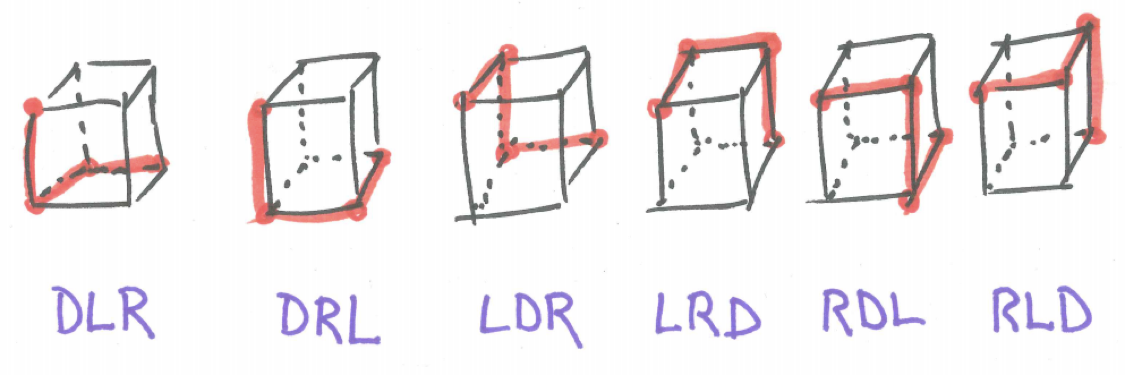 DLR DRL LDR LRD RDL RLD